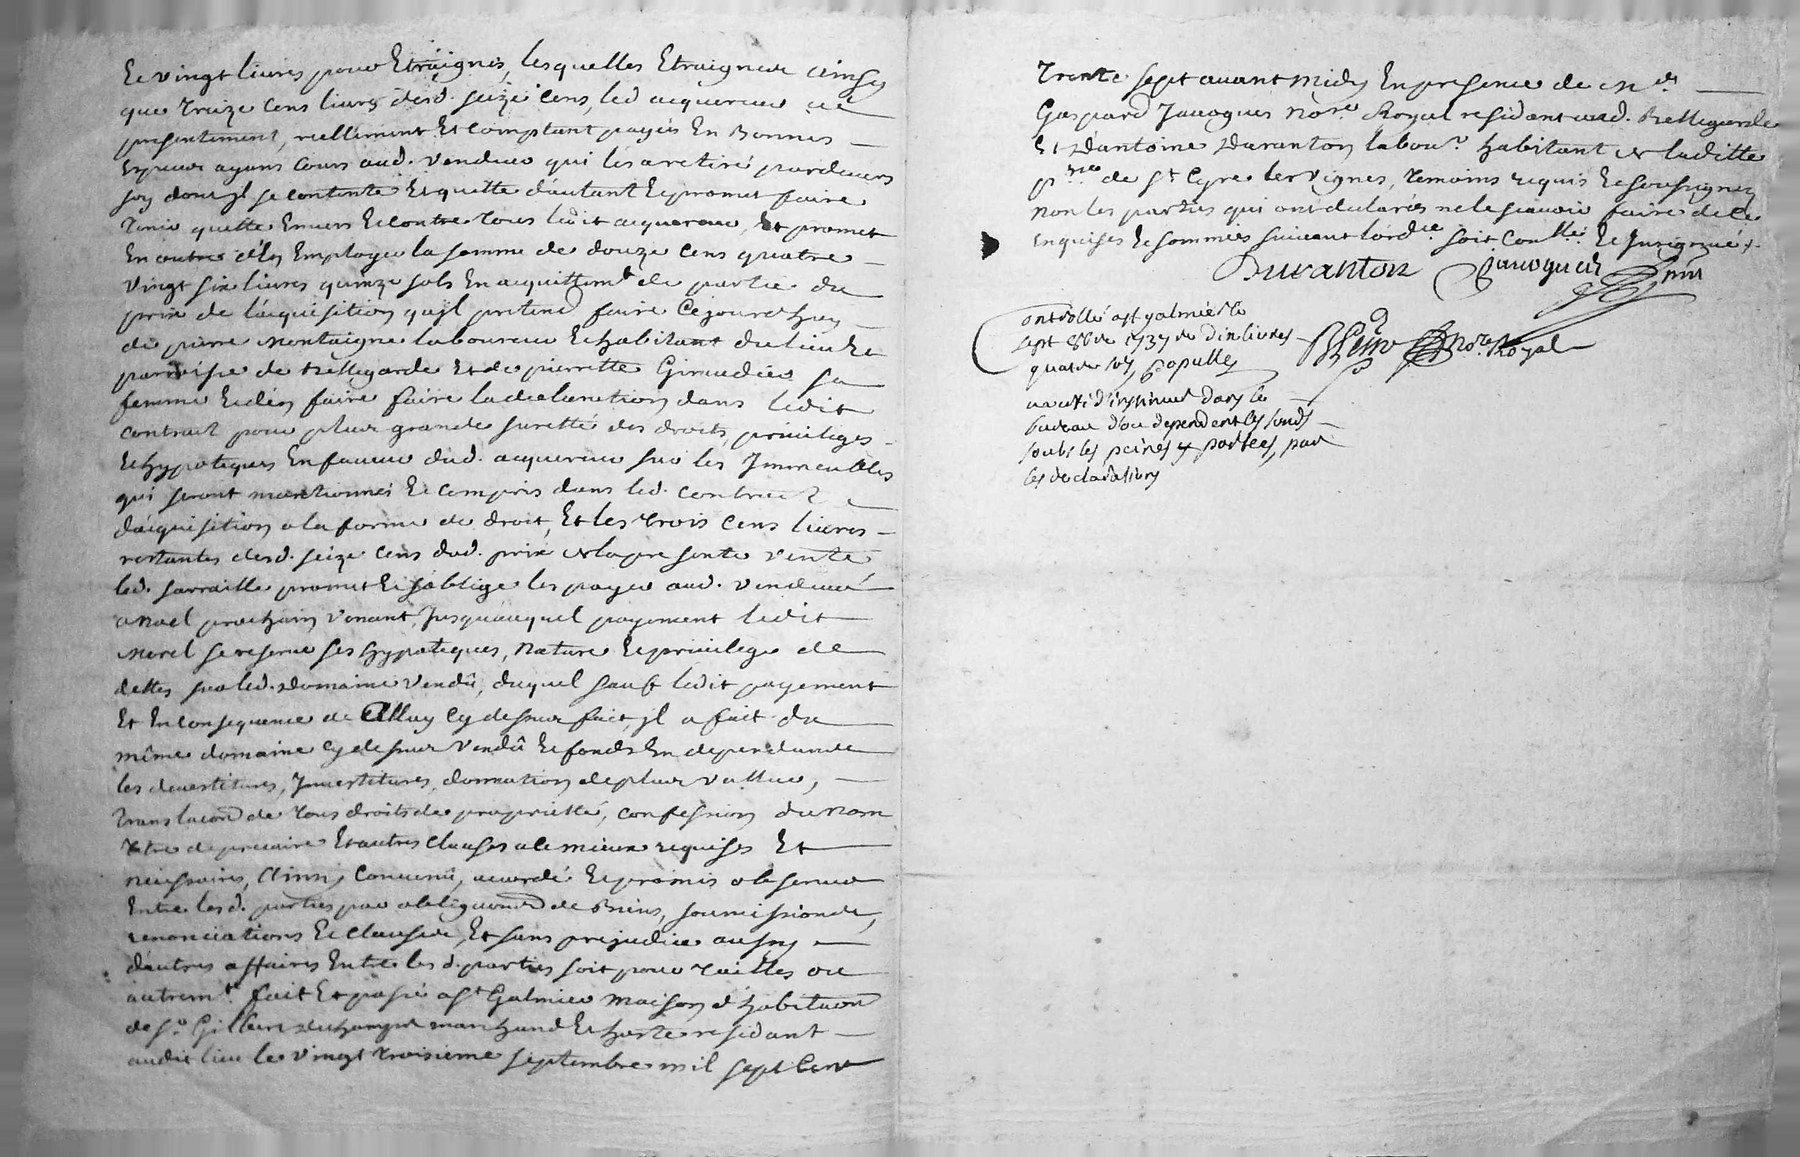 Et vingt livres pour Etraignes, lesquelles Etraignes ainsy
que treize cens livres desd. seize cens, led acquereur a
presentement, reellement Et comptant payés En Bonnes
Especes ayans cours aud. vendeur qui les a retiré pardevers
soy dont jl se contente Et quitte d'autant Et promet faire
tenir quitte Envers Et contre tous ledit acquereur, Et promet
En outre d'En Employer la somme de douze cens quatre
vingt six livres quinze sols En acquittemt de partie du
prix de l'acquisition qu'jl pretend faire Cejourd'huy
de pierre Montaigne laboureur Et habitant du lieu Et
parroisse de Bellegarde Et de pierrette Giraudier sa
femme Et d'En faire faire la declaration dans ledit
contract pour plus grande suretté des droits, privileges
Et hypoteques En faveur dud. acquereur sur les Jmmeubles
qui seront mentionnés Et compris dans led. contract
d'acquisition a la forme de droit, Et les trois Cens livres
restantes desd. seize cens dud. prix de la presente vente
led. sarraille promet Et s'oblige les payer aud. vendeur
a Noel prochain venant, Jusqu'auquel payement ledit
Morel se reserve ses hypoteques, Nature Et privilege de
dettes sur led. Domaine vendû, duquel sauf ledit payement
Et En consequence de Celluy cy dessus fait, jl a fait du
même domaine cy dessus vendû Et fonds En dependants
les devestitures, Jnvestitures, donnation de plus vallue,
translaôn de tous droits de proprietté, confession du nom
titre de precaire Et autres clauses a ce mieux requises Et
necessaires, Ainsy Convenû, accordé Et promis observer
Entre lesd. parties par obligaôn de Biens, soumissions,
renonciations Et clauses, Et sans prejudice aussy
d'autres affaires Entre lesd. parties soit pour tailles ou
autremt. fait Et passé a St Galmier maison d'habitaôn
de sr. Gilbert marchand Et hoste residant
audit lieu le vingt troisieme septembre mil sept Cens
trente sept avant midy En presence de Me.
Gaspard Javogues nore. Royal residant aud. Bellegarde
Et d'antoine Duranton labour. habitant de laditte
psse de St Cyre les vignes, temoins requis Et soussignez
Non les parties qui ont declarés ne le sçavoir faire de ce
Enquises Et sommées suivant l'ordce. soit conllé. Et Jnsignué
Duranton Javogues
Controllé a St galmier le
sept 8bre 1737 Rx dix livres
quatre sols
averti d'insinuer dans le
bureau d'ou dependent les fonds
soubs les peines y portées, par
les declarations
nore Royal